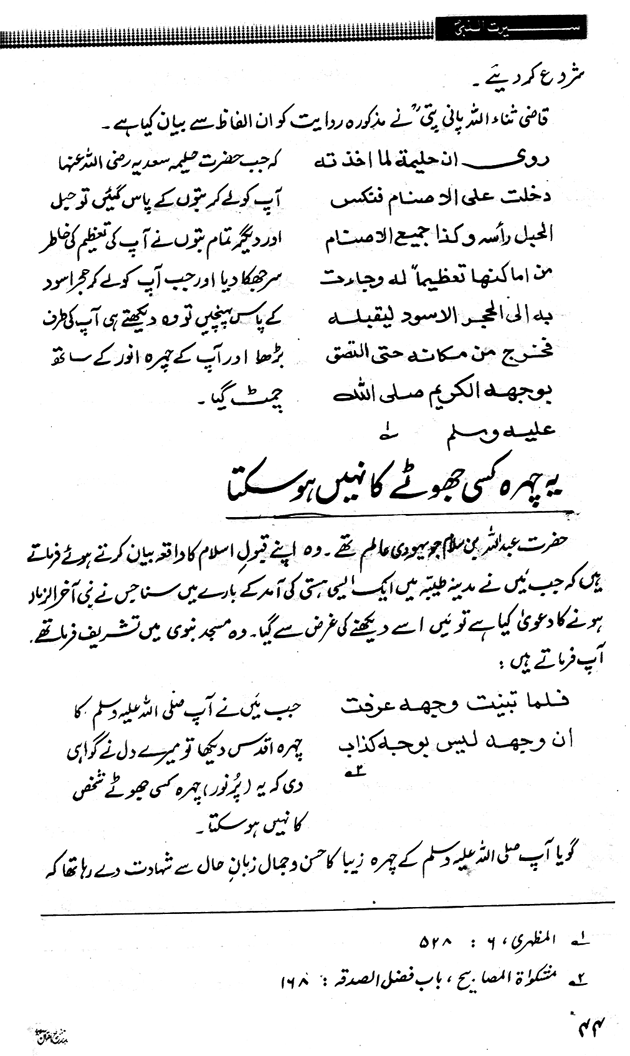 سیرت النبیؐ
شروع کر دیئے۔
قاضی ثناء اللہ پانی پتیؒ نے مذکورہ روایت کو ان الفاظ سے بیان کیا ہے۔
روی ان حلیمة لما اخذ ته
دخلت علی الاصنام فنکس
الحبل رأسه و کذا جمیع الاصنام
من اماکنها تعظیماً له وجاءت
به الی الحجر الاسود لیقبله
فخرج من مکانه حتی التصق
بوجهه الکریم صلی اللہ
علیه وسلم ۱؎
کہ جب حضرت حلیمہ سعدیہ رضی اللہ عنہا
آپ کو لے کر بتوں کے پاس گئیں تو حبل
اور دیگر تمام بتوں نے آپ کی تعظیم کی خاطر
سر جھکا دیا اور جب آپ کو لے کر حجر اسود
کے پاس پہنچیں تو وہ دیکھتے ہی آپ کی طرف
بڑھا اور آپ کے چہرہ انور کے ساتھ
چمٹ گیا۔
یہ چہرہ کسی جھوٹے کا نہیں ہو سکتا
حضرت عبداللہ بن سلام جو یہودی عالم تھے۔ وہ اپنے قبول اسلام کا واقعہ بیان کرتے ہوئے فرماتے
ہیں کہ جب میں نے مدینہ طیبہ میں ایک ایسی ہستی کی آمد کے بارے میں سنا جس نے نبی آخرالزماں
ہونے کا دعویٰ کیا ہے تو میں اسے دیکھنے کی غرض سے گیا۔ وہ مسجد نبوی میں تشریف فرما تھے۔
آپ فرماتے ہیں:
فلما تبینت وجهه عرفت
ان وجهه لیس بوجه کذاب
۲؎
جب میں نے آپ صلی اللہ علیہ وسلم کا
چہرہ اقدس دیکھا تو میرے دل نے گواہی
دی کہ یہ (پُرنور) چہرہ کسی جھوٹے شخص
کا نہیں ہو سکتا۔
گویا آپ صلی اللہ علیہ وسلم کے چہرہ زیبا کا حسن و جمال زبانِ حال سے شہادت دے رہا تھا کہ
۱؎ المظہری، ۶ : ۵۲۸
۲؎ مشکواة المصابیح، باب فضل الصدقه : ۱۶۸
۴۴